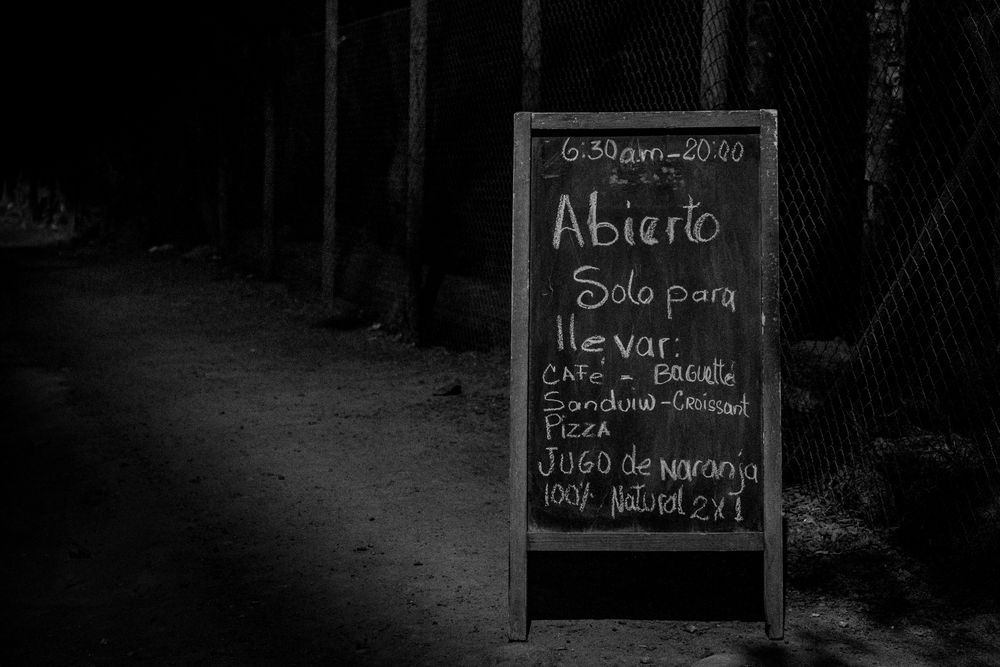 6:30am-20:00
Abierto
Solo para
llevar:
CAFé - BaGuetté
Sanduiw-CRoissant
PizzA
JUGO de NaRanja
100% Natural 2x1